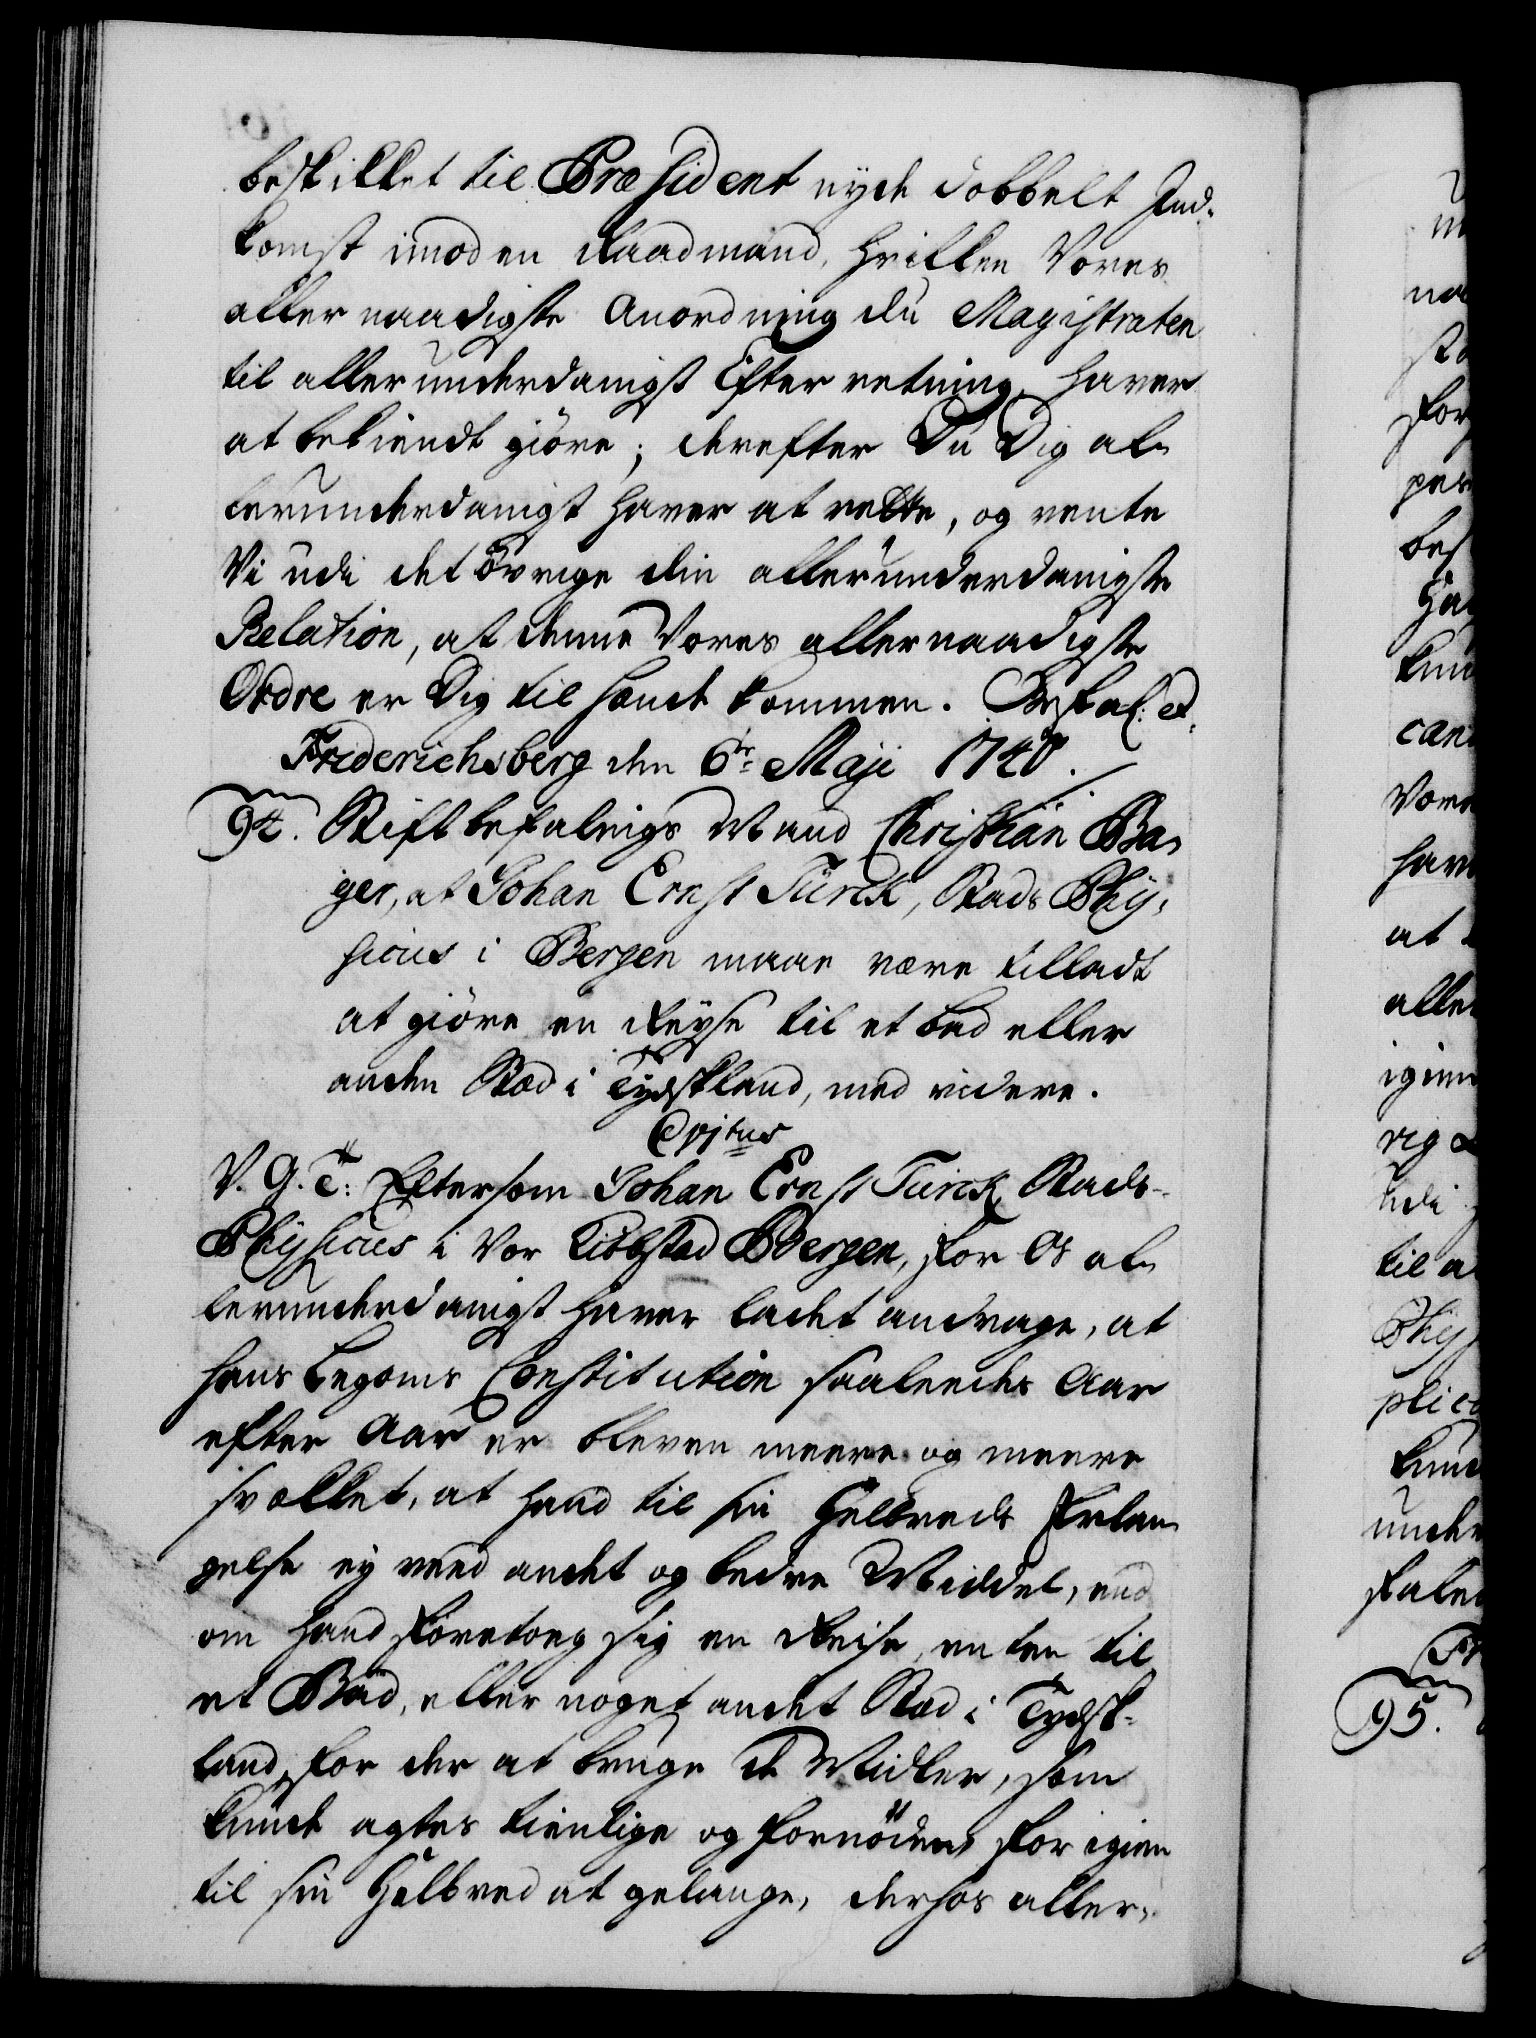 beskikket til Præsident nyde dobbelt Ind-
komst imod en Raadmand, hvilken Vores
allernaadigste Anordning du Magistraten
til allerunderdanigst Efterretning haver
at bekiendt giöre; derefter Du Dig al-
lerunderdanigst haver at rette, og vente
Vi udi det övrige din allerunderdanigste
Relation, at denne Vores allernaadigste
Ordre er Dig til hænde kommen. Befal: et.
Friderichsberg den 6te Maji 1740.
94. Stiftbefalings Mand Christian Ba-
ger, at Johan Ernst Türck, Stads Phÿ-
sicus i Bergen maae være tilladt
at giöre en Reÿse til et bad eller
anden Stæd i Tydskland, med videre.
V. G. T: Eftersom Johan Ernst Türck Stads-
Phÿsicus i Vor Kiöbstad Bergen, for Os al-
lerunderdanigst haver ladet andrage, at
hans Legoms Constitution saaledes Aar
efter Aar er bleven meere og meere
svækket, at hand til sin Helbreds Erlan-
gelse ej veed andet og bedre Middel, end
om hand foretoeg sig en Reise, enten til
et Bad, eller noget andet Stæd i Tydsk-
land, for der at bruge de Midler, som
kunde agtes tienlige og fornöden for igien
til sin Helbred at gelange, derhos aller-
95.